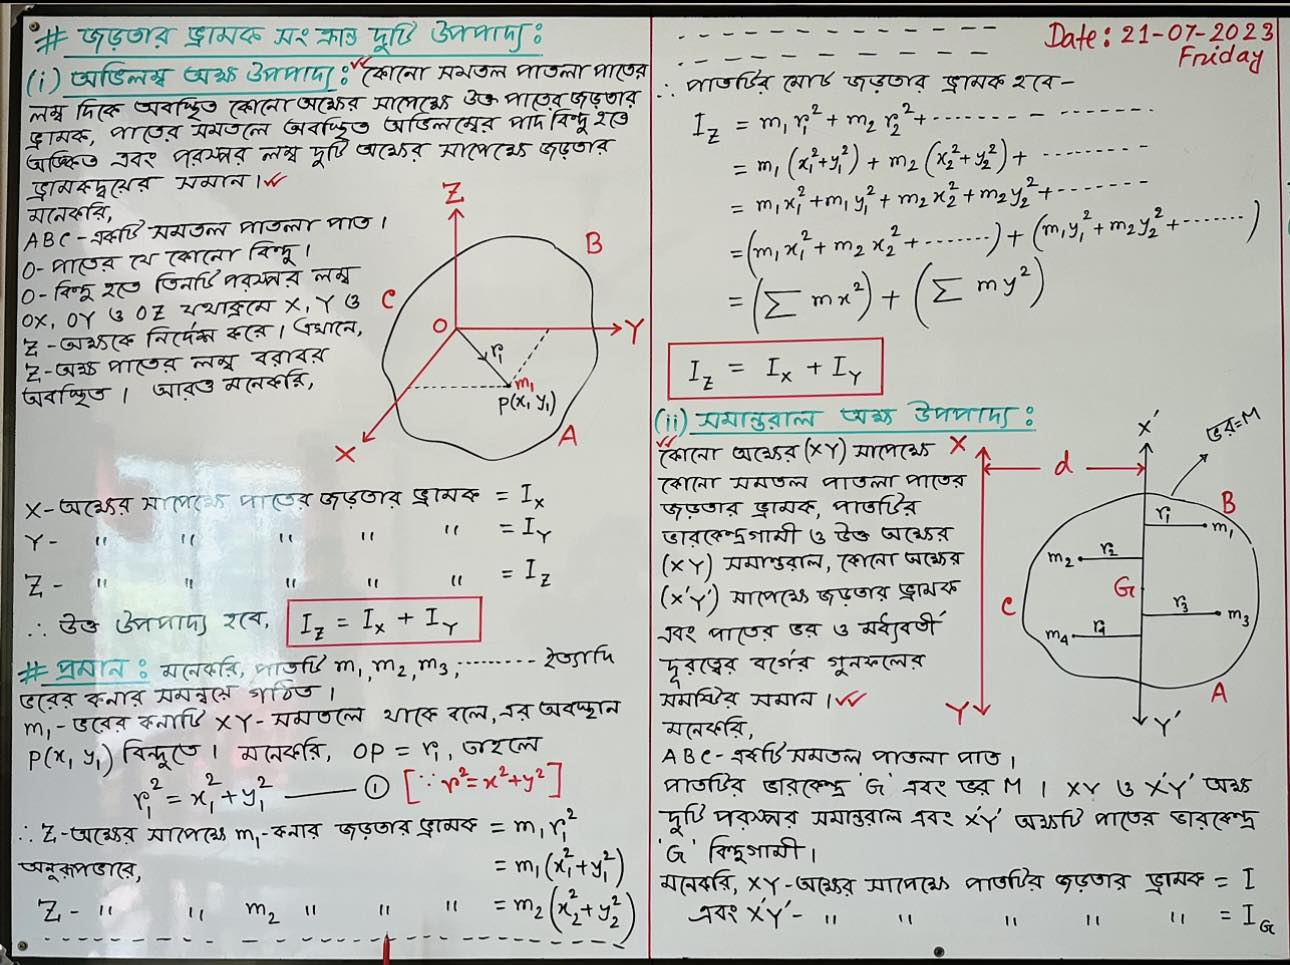 # জড়তার ভ্রামক সংক্রান্ত দুটি উপপাদ্য :
(i) অভিলম্ব অক্ষ উপপাদ্য : কোনো সমতল পাতলা পাতের
লম্ব দিকে অবস্থিত কোনো অক্ষের সাপেক্ষে উক্ত পাতের জড়তার
ভ্রামক, পাতের সমতলে অবস্থিত অভিলম্বের পাদ বিন্দু হতে
অঙ্কিত এবং পরস্পর লম্ব দুটি অক্ষের সাপেক্ষে জড়তার
ভ্রামকদ্বয়ের সমান।
মনেকরি,
ABC - একটি সমতল পাতলা পাত।
O - পাতের যে কোনো বিন্দু।
O - বিন্দু হতে তিনটি পরস্পর লম্ব
OX, OY ও OZ যথাক্রমে X, Y ও
Z - অক্ষকে নির্দেশ করে। এখানে,
Z - অক্ষ পাতের লম্ব বরাবর
অবস্থিত। আরও মনেকরি,
Z
B
C
O
Y
r₁
m₁
P(x₁ y₁)
X
A
X - অক্ষের সাপেক্ষে পাতের জড়তার ভ্রামক = I_X
Y - " " " " " = I_Y
Z - " " " " " = I_Z
∴ উক্ত উপপাদ্য হবে, I_Z = I_X + I_Y
# প্রমান : মনেকরি, পাতটি m₁, m₂, m₃, ......... ইত্যাদি
ভরের কনার সমন্বয়ে গঠিত।
m₁ - ভরের কনাটি XY - সমতলে থাকে বলে, এর অবস্থান
P(x₁ y₁) বিন্দুতে। মনেকরি, OP = r₁, তাহলে
r₁² = x₁² + y₁² ——— ① [∵ r² = x² + y²]
∴ Z - অক্ষের সাপেক্ষে m₁ - কনার জড়তার ভ্রামক = m₁r₁²
অনুরূপভাবে, = m₁(x₁² + y₁²)
Z - " " m₂ " " " = m₂(x₂² + y₂²)
Date : 21-07-2023
Friday
∴ পাতটির মোট জড়তার ভ্রামক হবে –
I_Z = m₁r₁² + m₂r₂² + .........
= m₁(x₁² + y₁²) + m₂(x₂² + y₂²) + .........
= m₁x₁² + m₁y₁² + m₂x₂² + m₂y₂² + .........
= (m₁x₁² + m₂x₂² + .......) + (m₁y₁² + m₂y₂² + .......)
= (∑ mx²) + (∑ my²)
I_Z = I_X + I_Y
(ii) সমান্তরাল অক্ষ উপপাদ্য :
কোনো অক্ষের (XY) সাপেক্ষে
কোনো সমতল পাতলা পাতের
জড়তার ভ্রামক, পাতটির
ভারকেন্দ্রগামী ও উক্ত অক্ষের
(XY) সমান্তরাল, কোনো অক্ষের
(X'Y') সাপেক্ষে জড়তার ভ্রামক
এবং পাতের ভর ও মধ্যবর্তী
দূরত্বের বর্গের গুনফলের
সমষ্টির সমান।
মনেকরি,
X
d
X'
ভর=M
B
r₁
m₁
m₂
r₂
G
C
r₃
m₃
m₄
r₄
A
Y
Y'
ABC - একটি সমতল পাতলা পাত।
পাতটির ভারকেন্দ্র 'G' এবং ভর M। XY ও X'Y' অক্ষ
দুটি পরস্পর সমান্তরাল এবং X'Y' অক্ষটি পাতের ভারকেন্দ্র
'G' বিন্দুগামী।
মনেকরি, XY - অক্ষের সাপেক্ষে পাতটির জড়তার ভ্রামক = I
এবং X'Y' - " " " " " = I_G